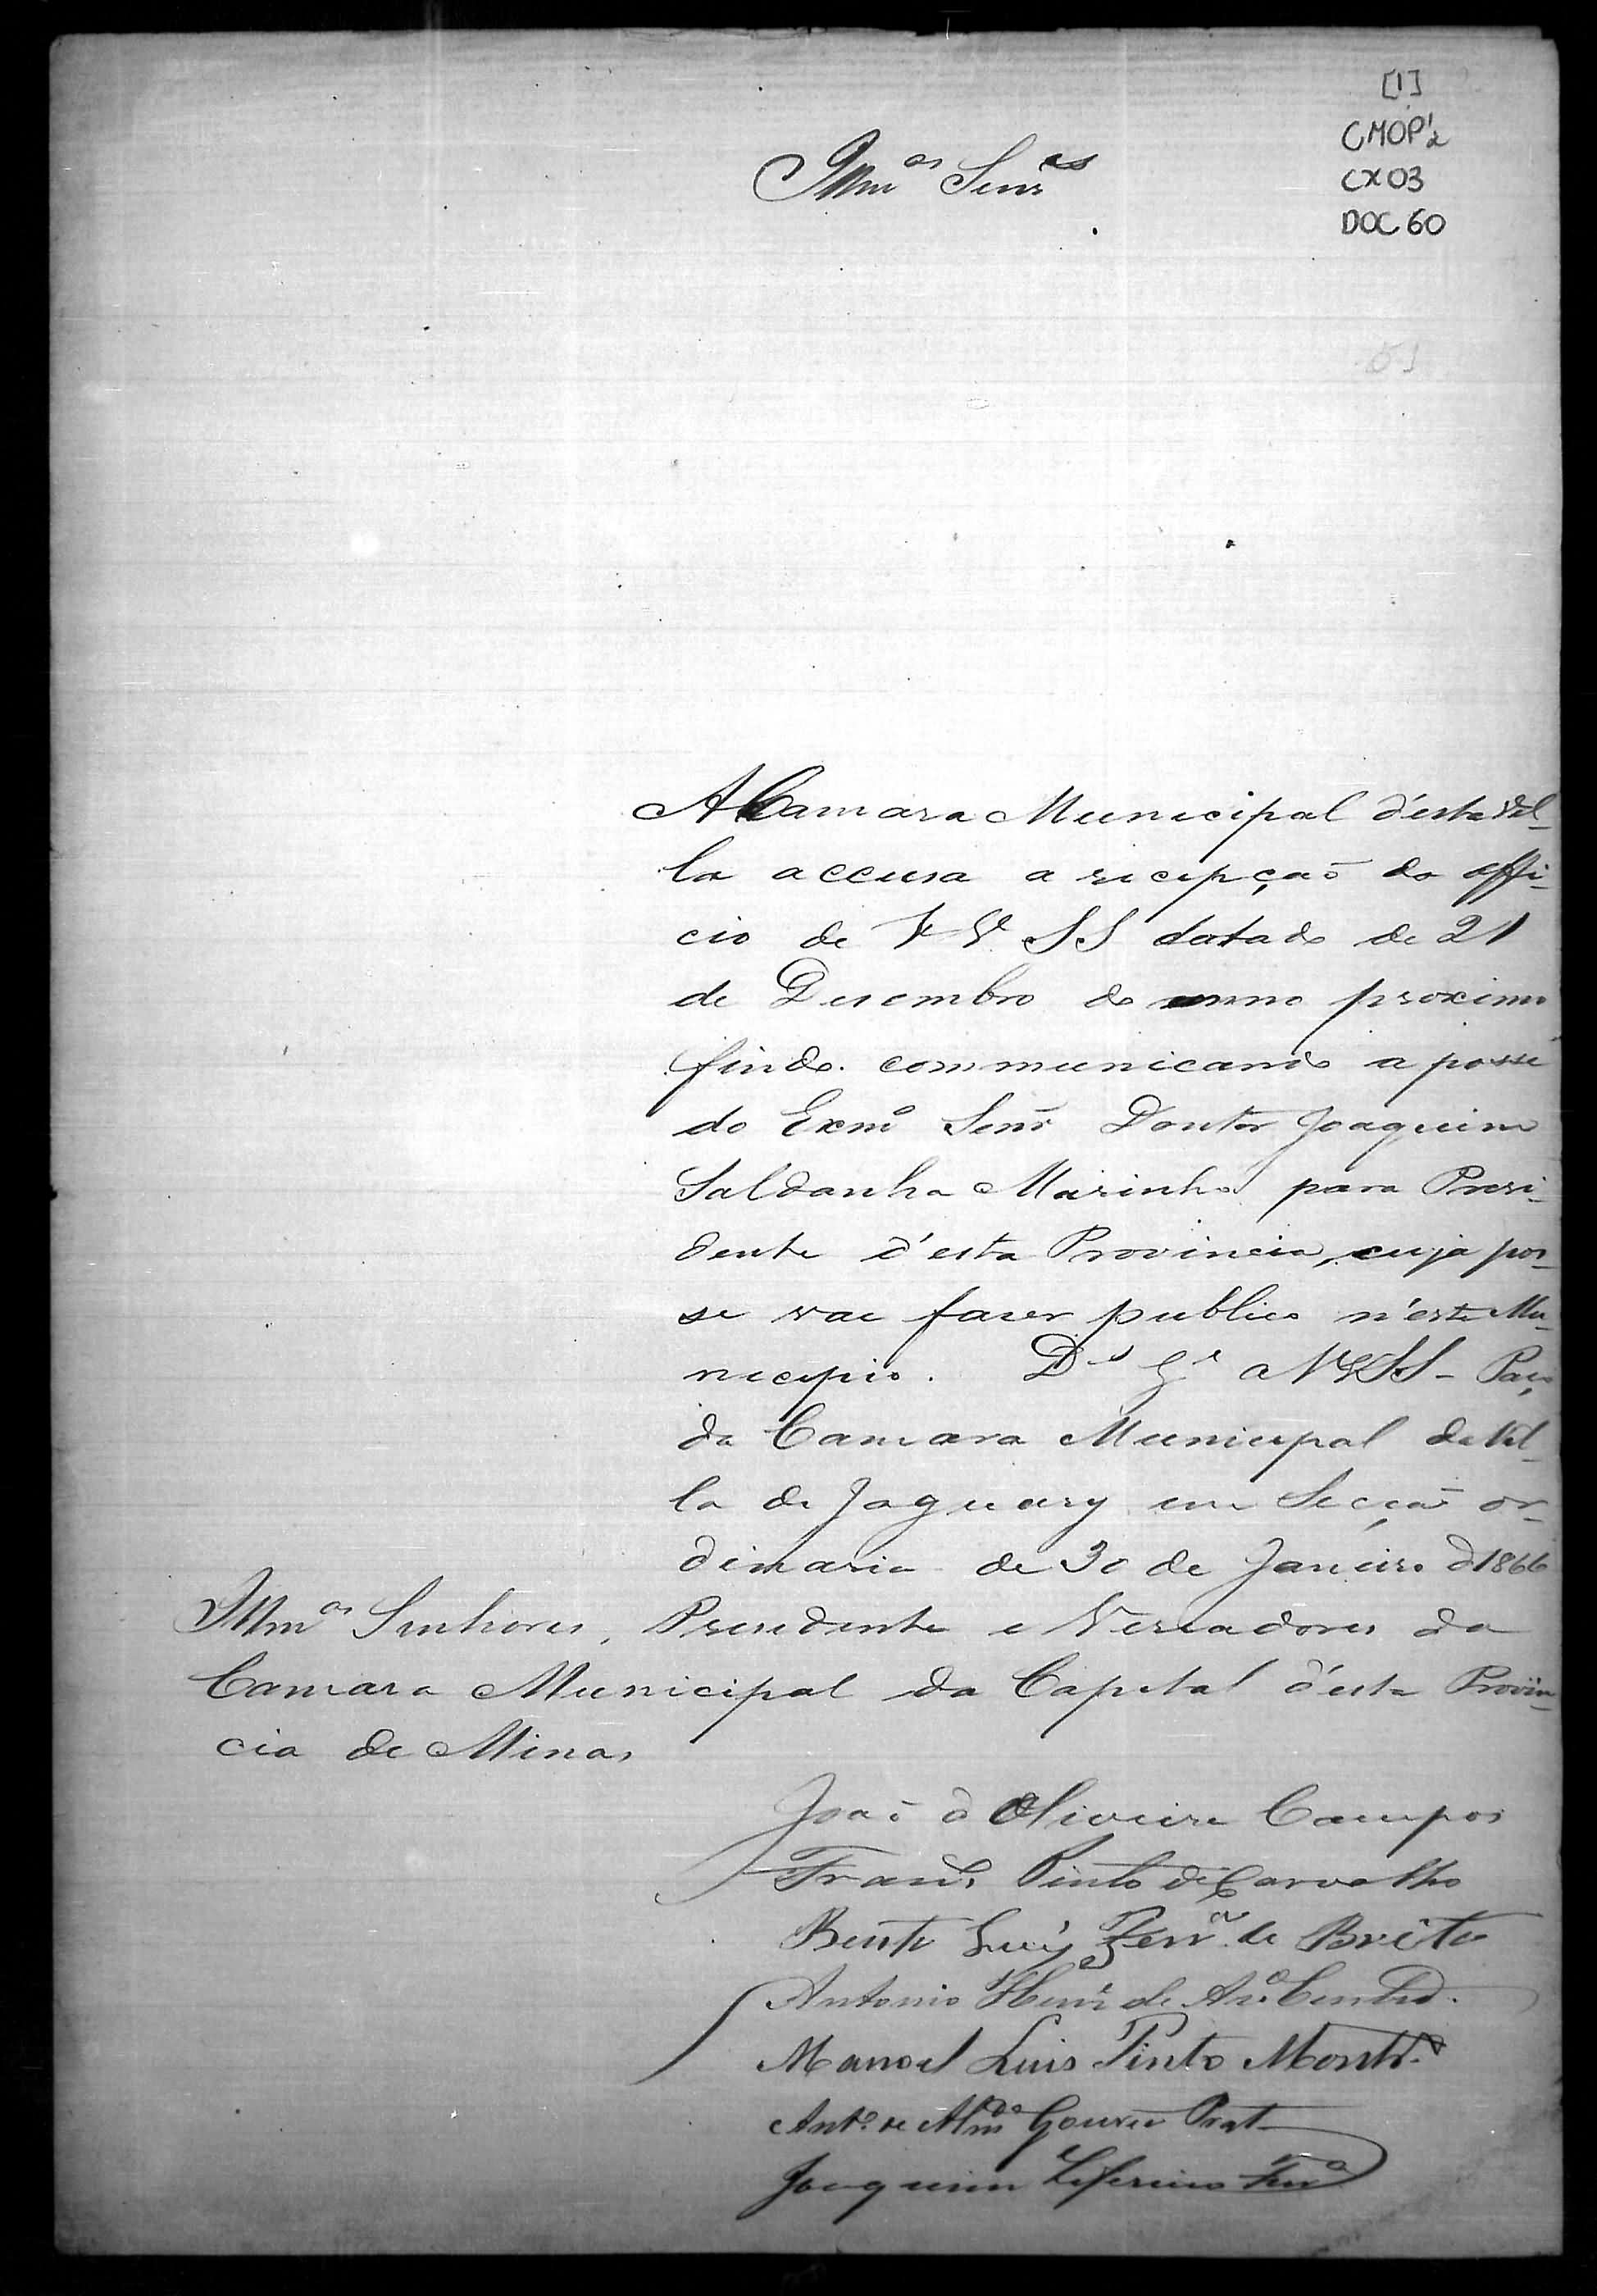 [1]
CMOP 1/2
CX03
DOC 60
Illmos Senres
A Camara Municipal d'esta Vil-
la accusa a recepção do offi-
cio de VV SS datado de 21
de Desembro do anno proximo
findo communicando a posse
do Exmo Senr Doutor Joaquim
Saldanha Marinho para Presi-
dente d'esta Provincia, cuja pos-
se vae faser publico n'este Mu-
nicipio. Ds Ge a VVSS - Paço
da Camara Municipal da Vil-
la de Jaguary em Secção or-
dinaria de 30 de Janeiro d 1866
Illmos Senhores, Presidente e Vereadores da
Camara Municipal da Capital d'esta Provin-
cia de Minas
João d Oliveira Campos
Franco Pinto de Carvalho
Bento Luiz Ferra de Brito
Antonio de
Manoel Luis Pinto Montro
Anto de Almda Gouvea Prat
Joaquim Zeferino